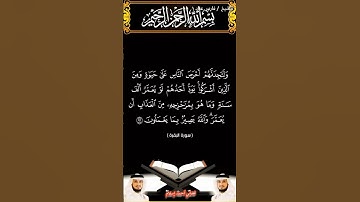 بسم الله الرحمن الرحيم
وَلَتَجِدَنَّهُمْ أَحْرَصَ النَّاسِ عَلَىٰ حَيَوٰةٍ وَمِنَ
الَّذِينَ أَشْرَكُوا۟ يَوَدُّ أَحَدُهُمْ لَوْ يُعَمَّرُ أَلْفَ
سَنَةٍ وَمَا هُوَ بِمُزَحْزِحِهِۦ مِنَ الْعَذَابِ أَن
يُعَمَّرَ وَاللَّهُ بَصِيرٌۢ بِمَا يَعْمَلُونَ
( سورة البقرة )